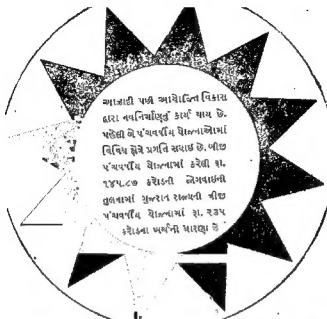 આઝાદી પછી આયોજિત વિકાસ
દ્વારા નવનિર્માણનું કાર્ય થાય છે.
પહેલી બે પંચવર્ષીય યોજનાઓમાં
વિવિધ ક્ષેત્રે પ્રગતિ સધાઈ છે. બીજી
પંચવર્ષીય યોજનામાં કરેલી રૂા.
૧૪૫.૮૭ કરોડની જોગવાઇની
તુલનામાં ગુજરાત રાજ્યની ત્રીજી
પંચવર્ષીય યોજનામાં રૂા. ૨૩૫
કરોડના ખર્ચની ધારણા છે